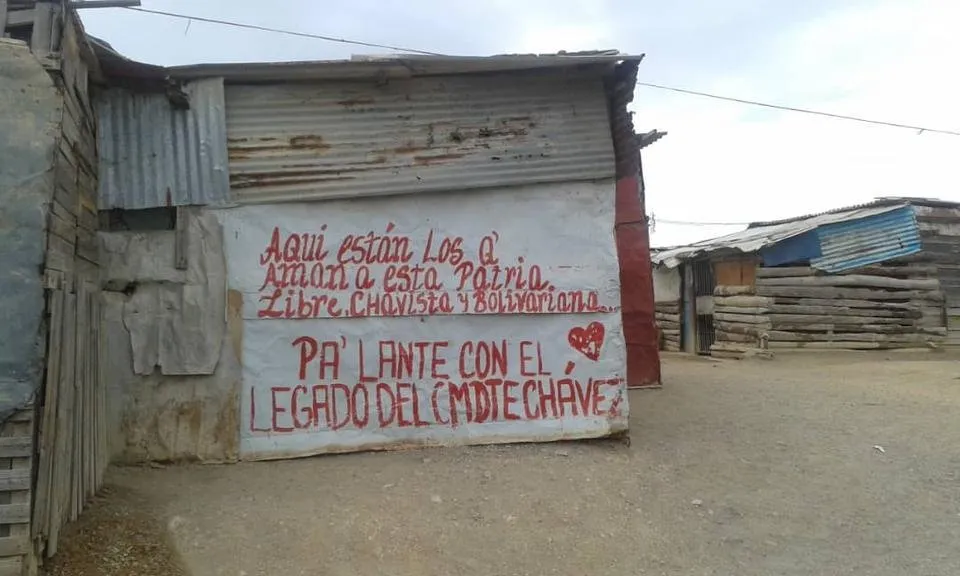 Aqui están Los Q'
Aman a esta Patria.
Libre, Chavista y Bolivariana...
PA' LANTE CON EL
LEGADO DEL CMDTE CHÁVEZ